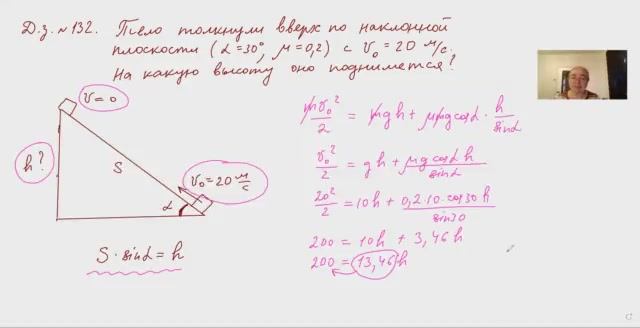 Д.з. №132. Тело толкнули вверх по наклонной
плоскости (α=30°, μ=0,2) с v₀=20 м/с.
На какую высоту оно поднимется?
v=0
h?
S
v₀=20 м/с
α
S·sinα=h
mv₀²/2 = mgh + μmg cosα · h/sinα
v₀²/2 = gh + μg cosα h/sinα
20²/2 = 10h + 0,2·10·cos30 h/sin30
200 = 10h + 3,46h
200 = 13,46h